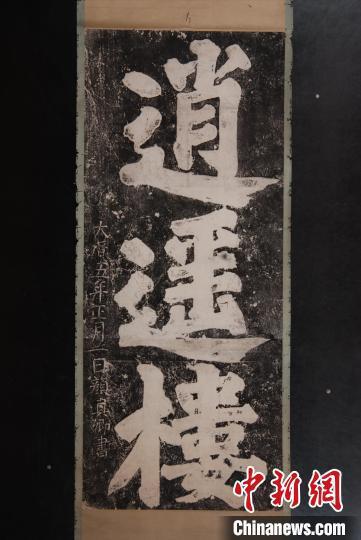 逍遥樓
大曆五年正月一日顏真卿書
中新網
Chinanews.com